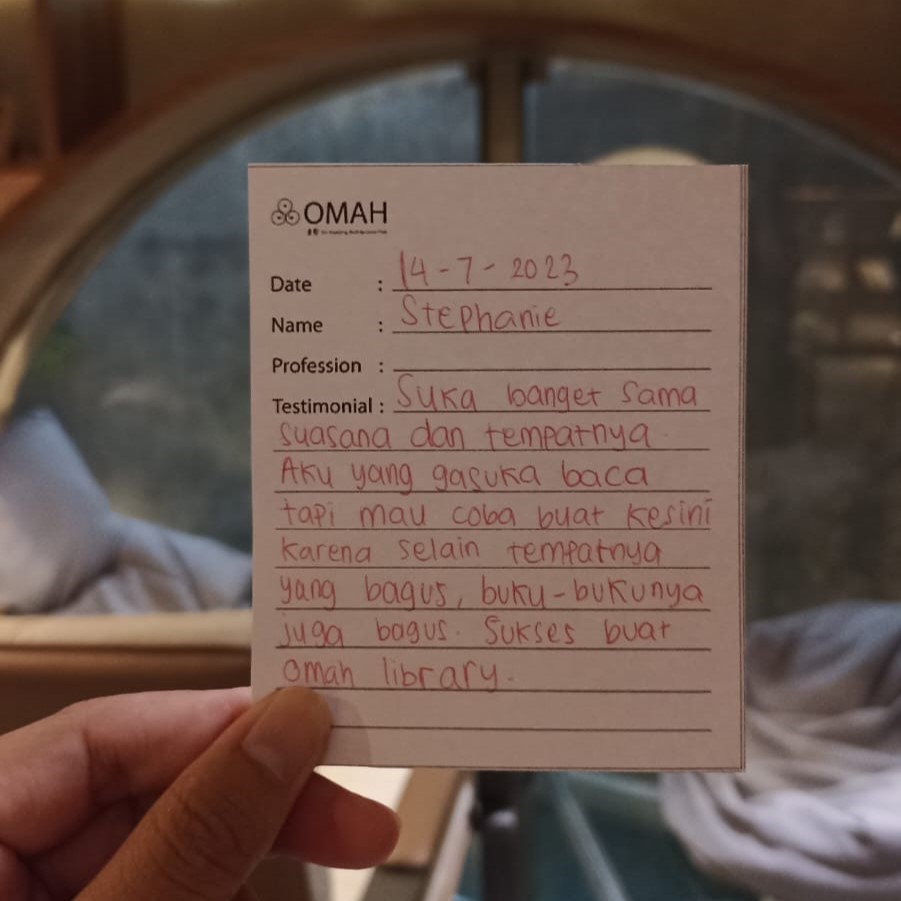 OMAH
Date : 14-7-2023
Name : Stephanie
Profession :
Testimonial : Suka banget sama
suasana dan tempatnya.
Aku yang gasuka baca
tapi mau coba buat kesini
karena selain tempatnya
yang bagus, buku-bukunya
juga bagus. Sukses buat
omah library.